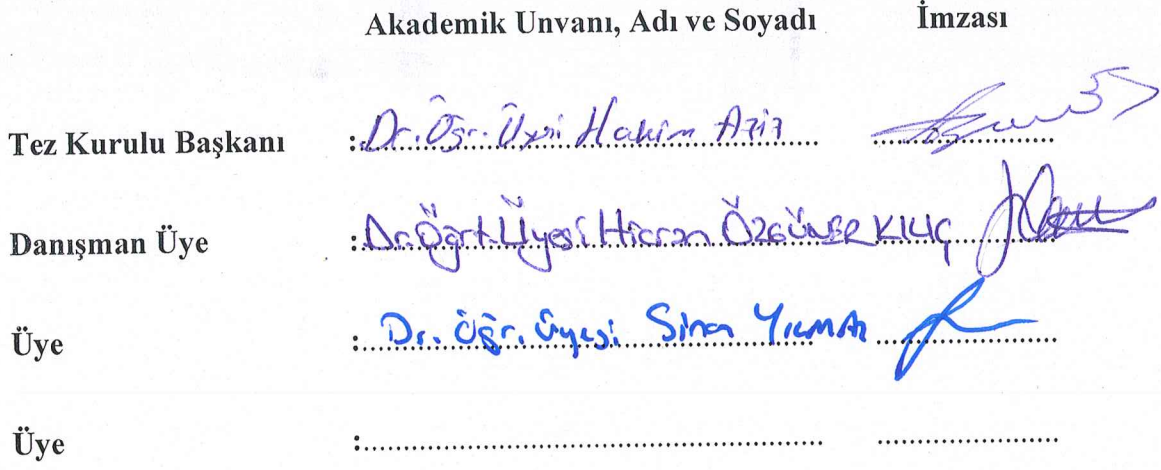 Akademik Unvanı, Adı ve Soyadı İmzası
Tez Kurulu Başkanı :Dr. Öğr. Üyesi Hakim Aziz
Danışman Üye :Dr. Öğrt. Üyesi Hicran ÖZGÜNER KILIÇ
Üye : Dr. Öğr. Üyesi Sinan YILMAZ
Üye :